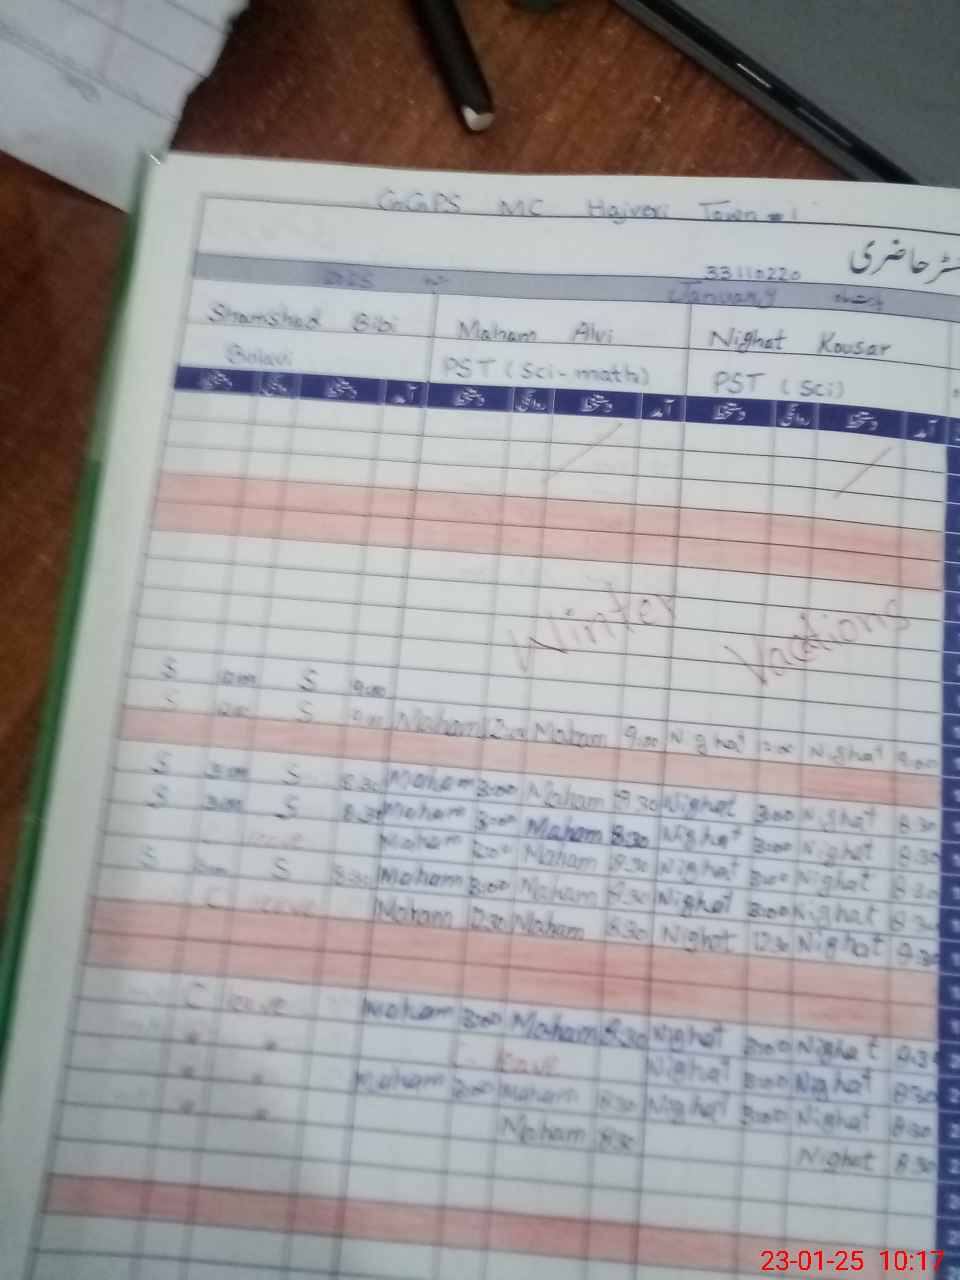 MC Hajveri Town # 1
33110220
2025 January
Shamshad Bibi Maham Alvi Nighat Kousar
PST (Sci-math) PST (Sci)
دستخط روانگی دستخط آمد دستخط روانگی دستخط آمد دستخط روانگی دستخط آمد
Winter Vacations
S S 9:00
S S Maham Maham 9:00 Nighat 12:00 Nighat 9:00
S 3:00 S 8:30 Maham 3:00 Maham 8:30 Nighat 3:00 Nighat 8:30
S 3:00 S 8:30 Maham 3:00 Maham 8:30 Nighat 3:00 Nighat 8:30
C leave Maham 3:00 Maham 8:30 Nighat 3:00 Nighat 8:30
S 3:00 S 8:30 Maham 3:00 Maham 8:30 Nighat 3:00 Nighat 8:30
C leave Maham 12:30 Maham 8:30 Nighat 12:30 Nighat 8:30
C leave Maham 3:00 Maham 8:30 Nighat 3:00 Nighat 8:30
" " C leave Nighat 3:00 Nighat 8:30
" " Maham 3:00 Maham 8:30 Nighat 3:00 Nighat 8:30
" " Maham 8:30 Nighat 8:30
23-01-25 10:17